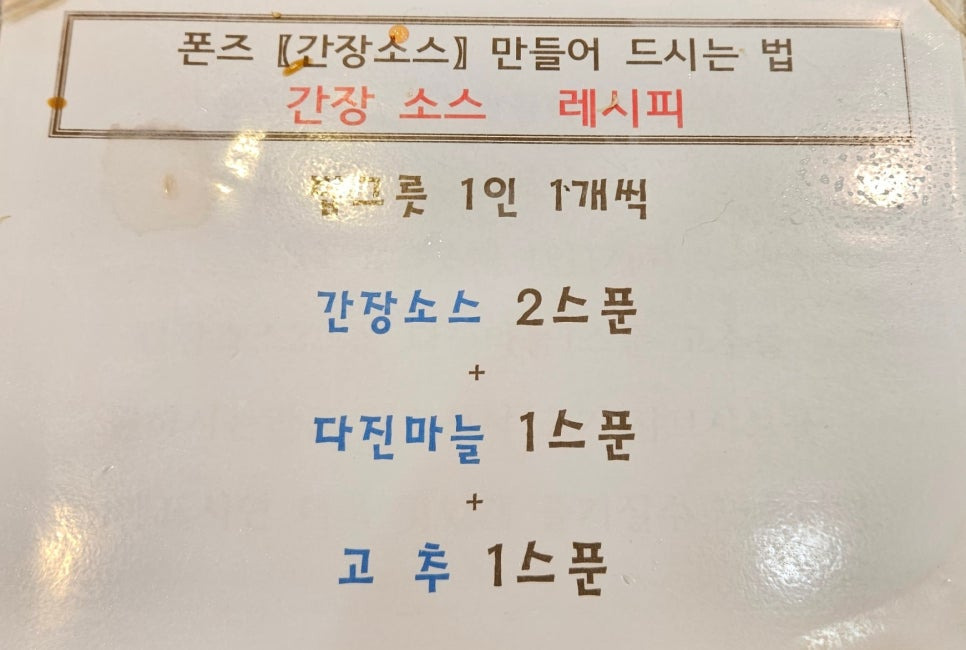 폰즈 〖간장소스〗 만들어 드시는 법
간장 소스 레시피
1인 1개씩
간장소스 2스푼
+
다진마늘 1스푼
+
고 추 1스푼